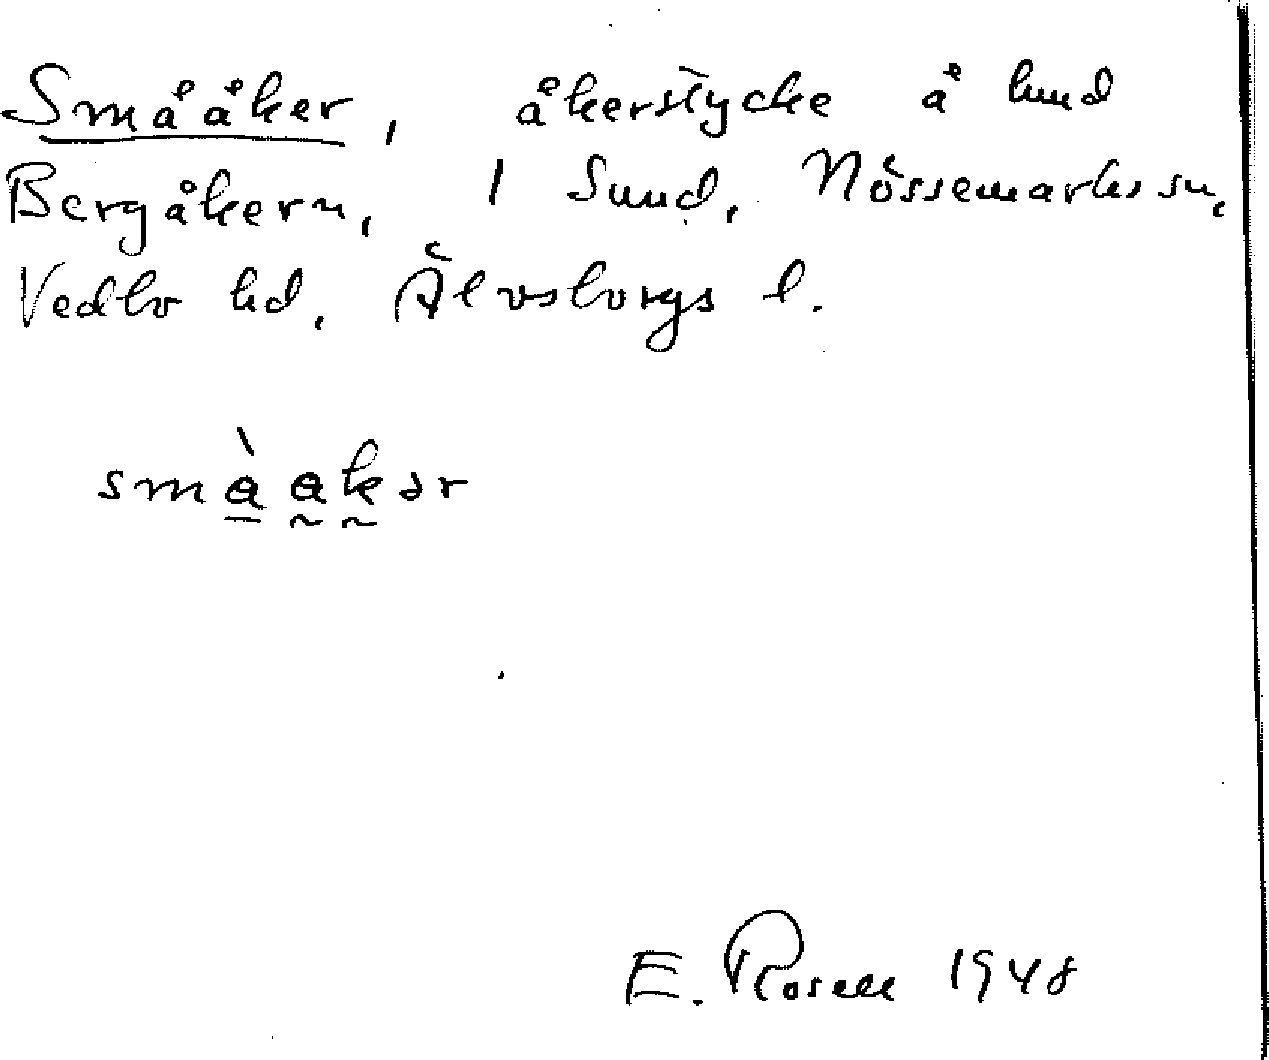 Smååker, åkerstycke å hmd
Bergåkern, 1 Sund, Nössemarks sn,
Vedbo hd, Älvsborgs l.
små̀akər
E. Rosell 1948